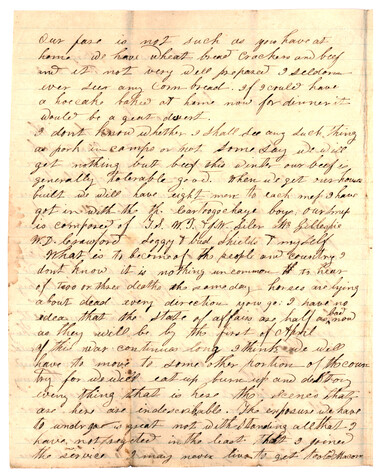 Our fare is not such as you have at
home we have wheat bread Crackers and beef
and it not very well prepared I seldom
ever see any Corn bread. If I could have
a hoecake baked at home now for dinner it
would be a great desert
I dont know whether I shall see any such thing
as pork in camps or not some say we will
get nothing but beef this winter our beef is
generally tolerable good. When we get our houses
built we will have eight men to each mess I have
got in with the Cartoogachaye boys. Our mess
is composed of W. T. Siler Gillespie
W. D. Crawford Bud Shields & myself
What is to become of the people and country I
dont know it is nothing uncommon to hear
of two or three deaths the same day horses are lying
about dead every direction you go. I have no
idea that the state of affairs are half as bad now
as they will be by the first of April
if this war continues long I think we will
have to move to some other portion of the coun
try for we will eat up burn up and destroy
every thing that is here the scenes that
are here are indescribable. The exposure we have
to undergo is great notwithstanding all that I
have not regreted in the least that I joined
the service I may never live to get home